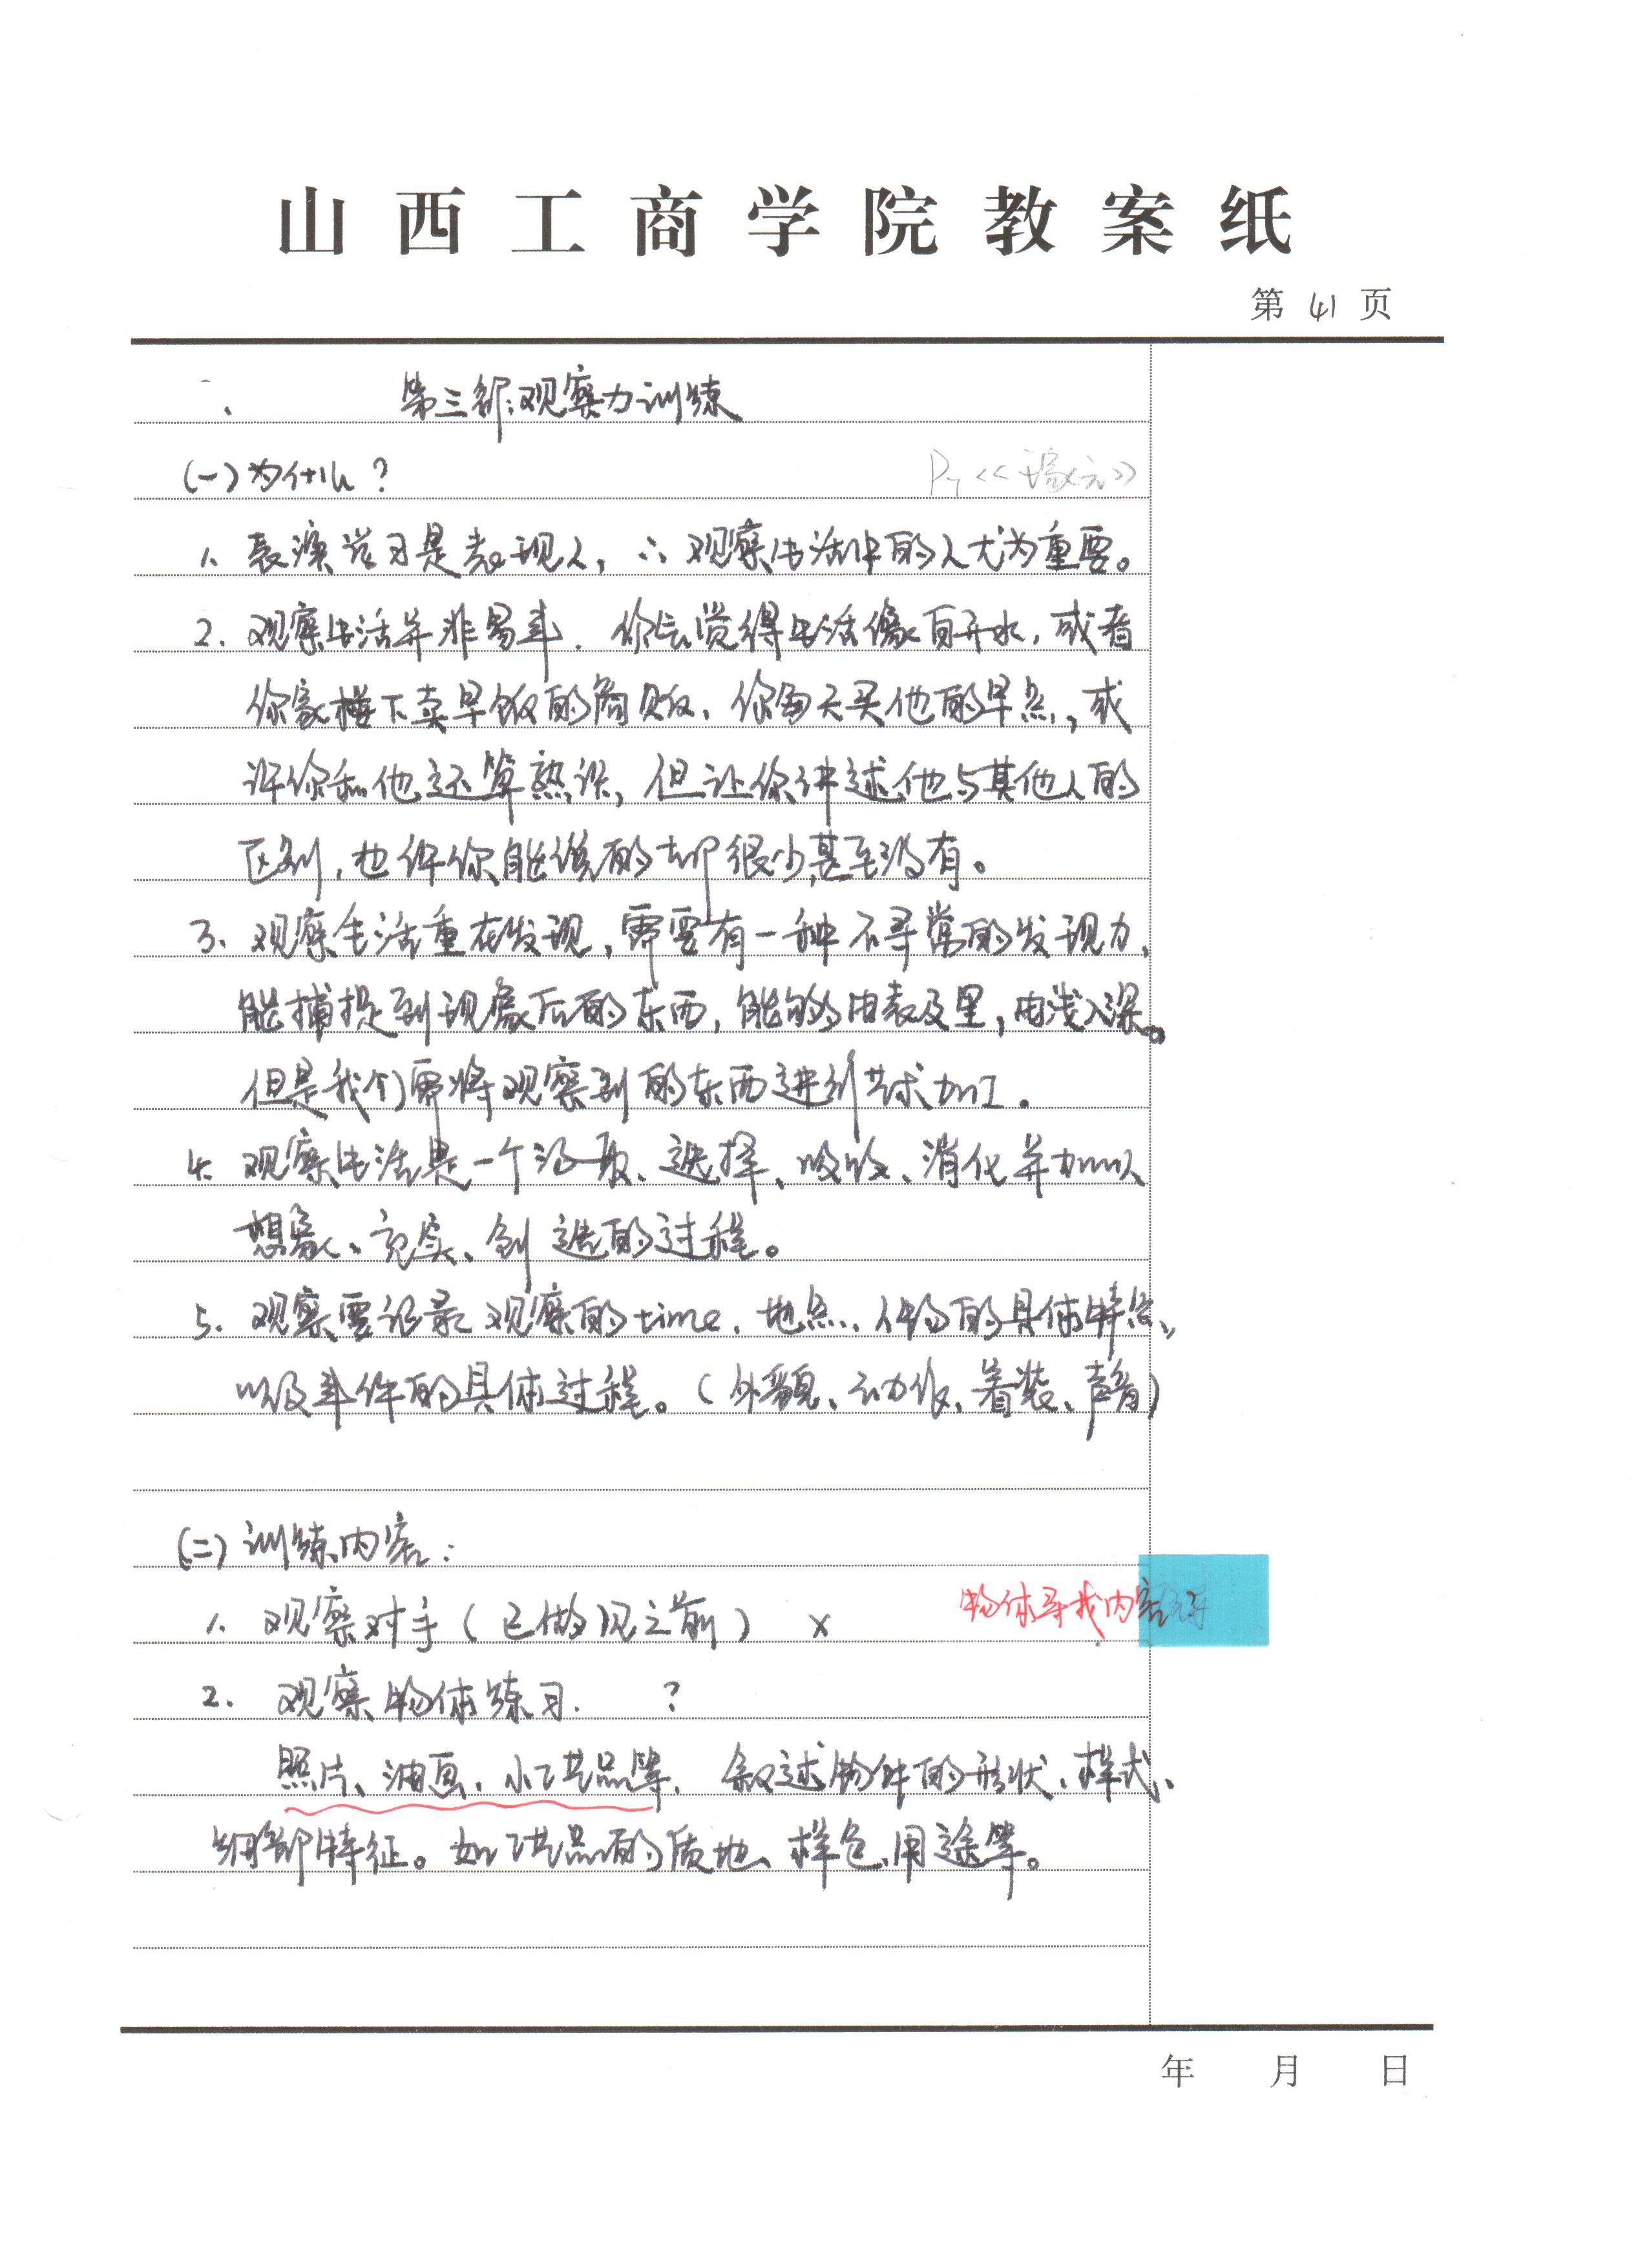 山西工商学院教案纸
第 41 页
第三部：观察力训练
(一)为什么？
1. 表演学习是表现人，∴ 观察生活中的人尤为重要。
2. 观察生活并非易事. 你会觉得生活像白开水，或者
你家楼下卖早饭的商贩，你每天买他的早点，或
许你和他还算熟识，但让你讲述他与其他人的
区别，也许你能说的却很少甚至没有。
3. 观察生活重在发现，需要有一种不寻常的发现力，
能捕捉到现象后的东西，能够由表及里，由浅入深。
但是我们需将观察到的东西进行艺术加工.
4. 观察生活是一个汲取、选择、吸收、消化并加以
想象、充实、创造的过程。
5. 观察要记录观察的time、地点、人物的具体特点、
以及事件的具体过程。（外貌、动作、着装、声音）
(二)训练内容：
1. 观察对手（已做见之前） x
物体寻找内容
2. 观察物体练习. ?
照片、油画、小工艺品等. 叙述物件的形状、样式、
细部特征。如工艺品的质地、样色、用途等。
年 月 日